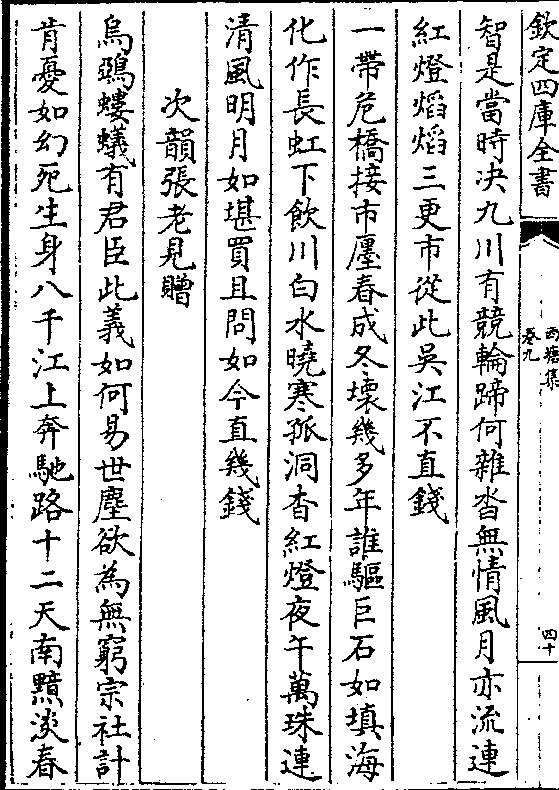 欽定四庫全書
西塘集
卷九
四十
智是當時决九川有競輪蹄何雜沓無情風月亦流連
紅燈熖熖三更市從此吳江不直錢
一帶危橋接市廛春成冬壊幾多年誰驅巨石如填海
化作長虹下飲川白水曉寒孤洞杳紅燈夜午萬珠連
清風明月如堪買且問如今直幾錢
次韻張老見贈
烏鵶螻蟻有君臣此義如何易世塵欲為無窮宗社計
肯憂如幻死生身八千江上奔馳路十二天南黯淡春